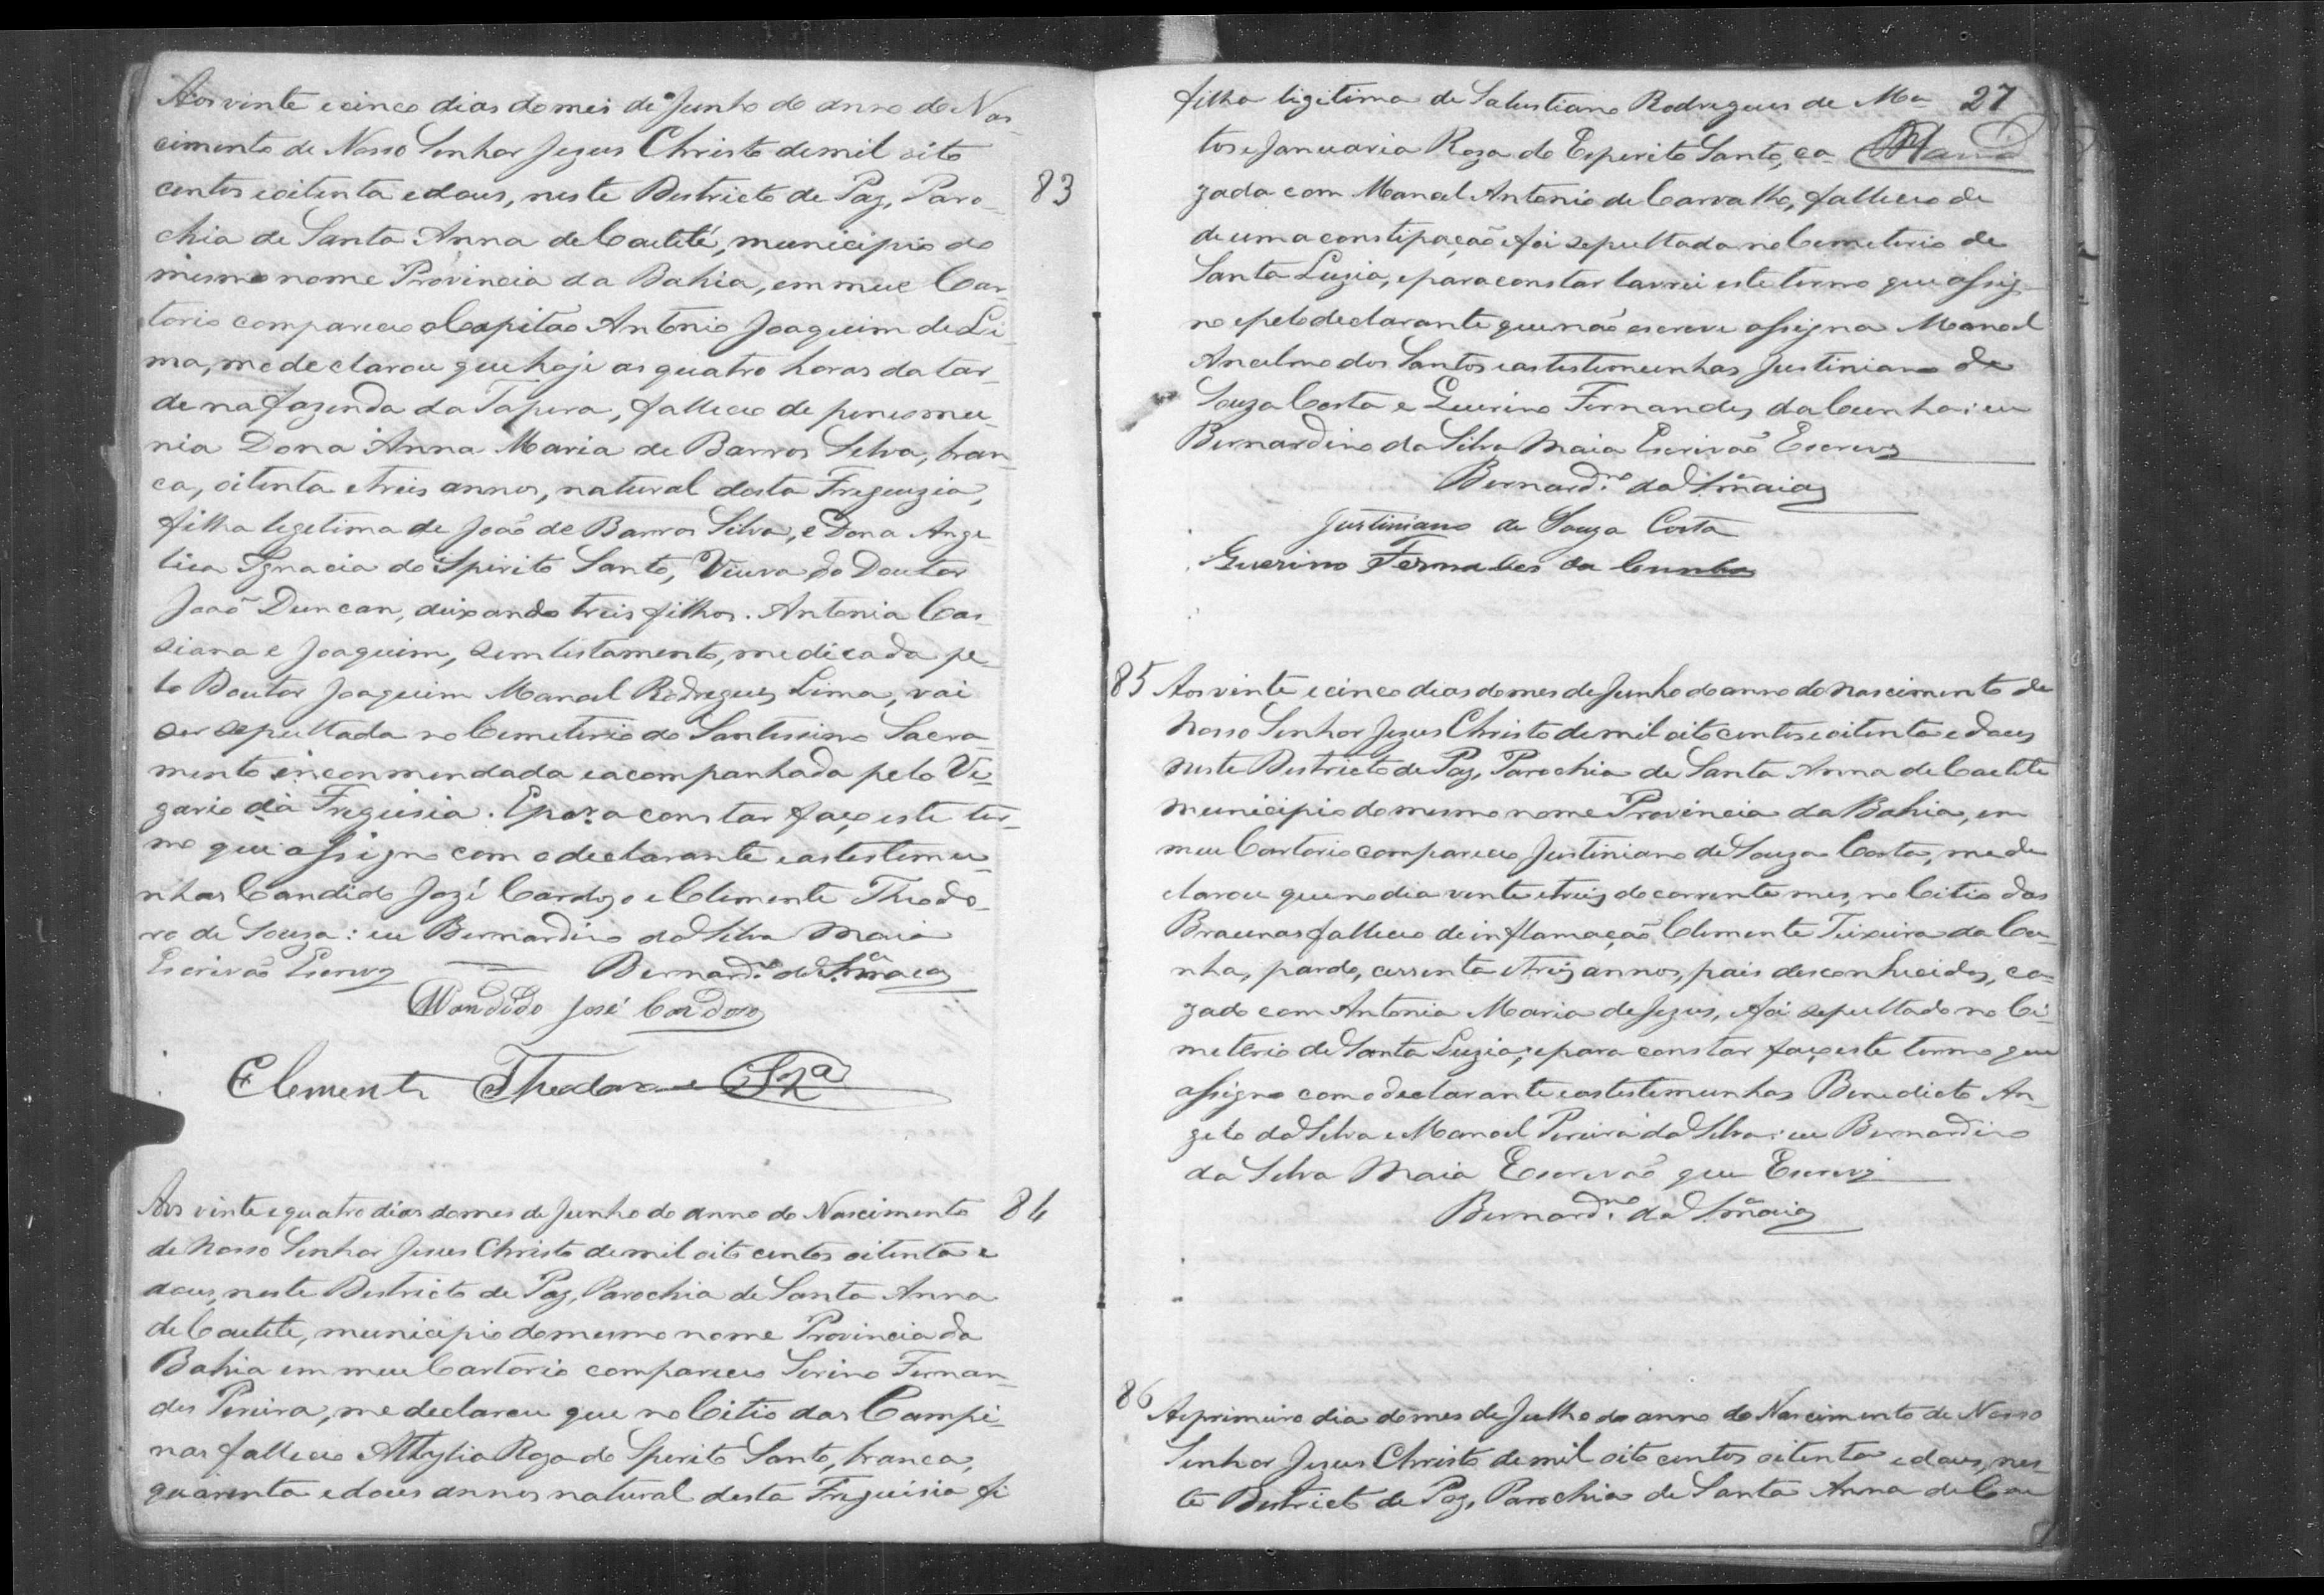 Aos vinte e cinco dias do mes de Junho do anno do Nas
cimento de Nosso Senhor Jezus Christo de mil oito
centos e oitenta e dous, neste Destricto de Paz, Paro- 83
chia de Santa Anna de Caetité, municipio do
mesmo nome Provincia da Bahia, em meu Car-
torio compareceo o Capitão Antonio Joaquim de Li-
ma, me declarou que hoje as quatro horas da tar-
de na fazenda da Tapera, falleceo de pneomu-
nia Dona Anna Maria de Barros Silva, bran-
ca, oitenta e treis annos, natural desta Freguezia,
filha legetima de João de Barros Silva, e Dona Ange
lica Ignacia do Spirito Santo, Viuva do Doutor
João Duncan, deixando treis filhos. Antonia Cas
siana e Joaquim, sem testamento, medicada pe-
lo Doutor Joaquim Manoel Rodrigues Lima, vai
ser sepultada no Cemeterio do Santissimo Sacra-
mento inconmendada e acompanhada pelo Vi-
gario da Freguisia. E para constar faço este ter-
mo que assigno com o declarante e as testemu-
nhas Candido Jozé Cardozo e Clemente Theodo-
ro de Souza: eu Bernardino da Silva Maia
Escrivão Escrevy Bernard.no da S.a Maia
Candido José Cardozo
Clemente Theodoro Sza
Aos vinte e quatro dias do mes de Junho do anno do Nascimento 84
de Nosso Senhor Jesus Christo de mil oito centos oitenta e
dous, neste Destricto de Paz, Parochia de Santa Anna
de Caetite, municipio do mesmo nome Provincia da
Bahia em meu Cartorio compareceo Serino Fernan-
des Pereira, me declarou que no Citio das Campi-
nas falleceo Roza do Spirito Santo, branca,
quarenta e dous annos natural desta Freguisia fi
filha ligitima de Salustiano Rodrigues de Ma 27
tos e Januaria Roza do Esperito Santo, ca Maia
zada com Manoel Antonio de Carvalho, falleceo de
de uma constipação e foi sepultada no Cemeterio de
Santa Luzia, e para constar lavrei este termo que assig-
no e pelo declarante que não escreve assigna Manoel
Ancelmo dos Santos e as testemunhas Justiniano de
Souza Costa e Querino Fernandes da Cunha: eu
Bernardino da Silva Maia Escrivão Escrevy
Bernard.no da S.a Maia
Justiniano de Souza Costa
Guerino Fernandes da Cunha
85 Aos vinte e cinco dias do mes de Junho do anno do nascimento de
Nosso Senhor Jezus Christo de mil oito centos e oitenta e dous
neste Destricto de Paz, Parochia de Santa Anna de Caetite
municipio do mesmo nome Provincia da Bahia, em
meu Cartorio compareceo Justiniano de Souza Costa, me de
clarou que no dia vinte e treiz do corrente mes, no Citio das
Braunas falleceo de inflamação Clemente Teixeira da Cu-
nha, pardo, cessenta e treiz annos, pais desconhecidos, ca-
zado com Antonia Maria de Jezus, e foi sepultado no Ci-
meterio de Santa Luzia, e para constar faço este termo que
assigno com o declarante e as testemunhas Benedicto An-
gelo da Silva e Manoel Pereira da Silva: eu Bernardino
da Silva Maia Escrivão que Escrevi
Bernard.no da S.a Maia
86 Ao primeiro dia do mes de Julho do anno do Nascimento de Nosso
Senhor Jesus Christo de mil oito centos oitenta e dous, nes-
te Destricto de Paz, Parochia de Santa Anna de Cae